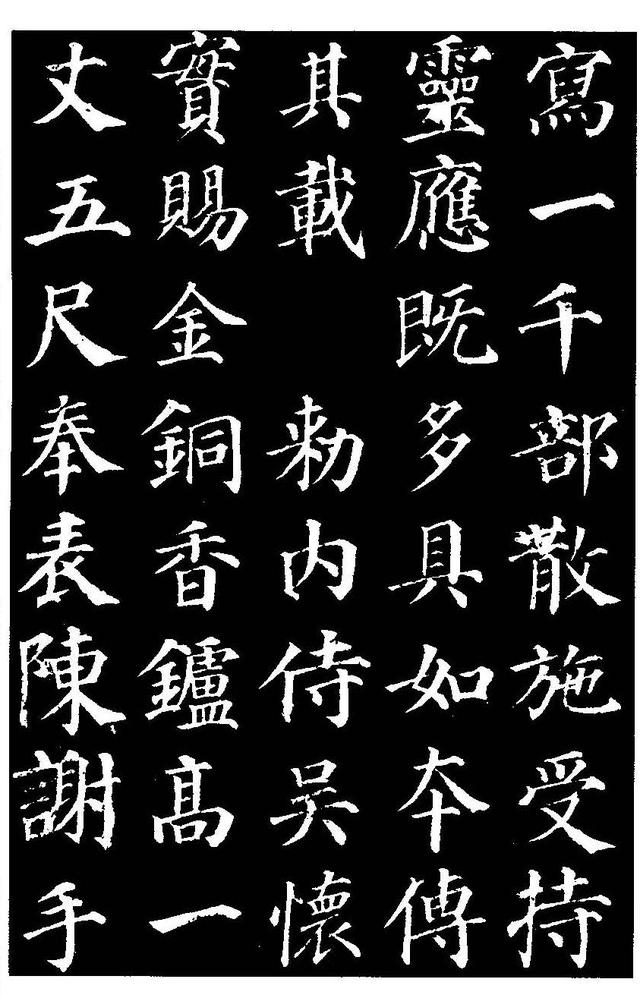 寫一千部散施受持
靈應既多具如本傳
其載　敕內侍吳懷
實賜金銅香鑪高一
丈五尺奉表陳謝手